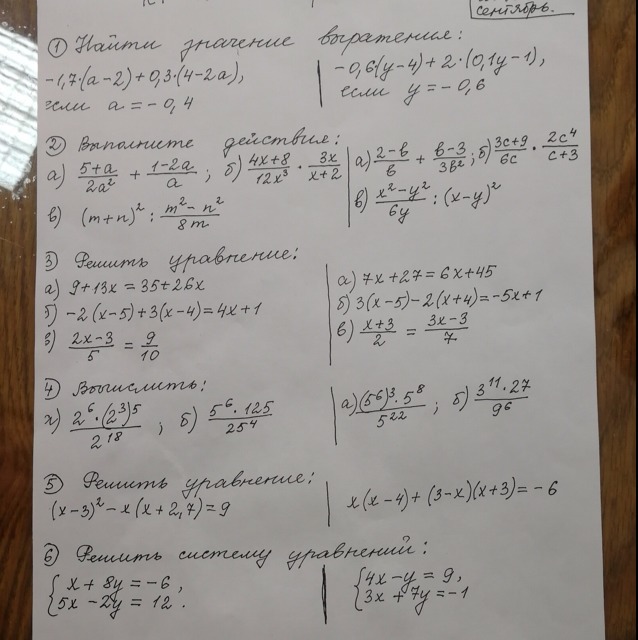 сентябрь.
① Найти значение выражения:
-1,7·(a-2)+0,3·(4-2a),
если a = -0,4
-0,6(y-4)+2·(0,1y-1),
если y = -0,6
② Выполните действия:
а) \frac{5+a}{2a^2} + \frac{1-2a}{a} ; б) \frac{4x+8}{12x^3} · \frac{3x}{x+2}
в) (m+n)^2 : \frac{m^2-n^2}{8m}
а) \frac{2-b}{b} + \frac{b-3}{3b^2} ; б) \frac{3c+9}{6c} · \frac{2c^4}{c+3}
в) \frac{x^2-y^2}{6y} : (x-y)^2
③ Решить уравнение:
а) 9+13x = 35+26x
б) -2(x-5)+3(x-4)=4x+1
в) \frac{2x-3}{5} = \frac{9}{10}
а) 7x+27=6x+45
б) 3(x-5)-2(x+4)=-5x+1
в) \frac{x+3}{2} = \frac{3x-3}{7}
④ Вычислить:
а) \frac{2^6·(2^3)^5}{2^{18}} ; б) \frac{5^6·125}{25^4}
а) \frac{(5^6)^3·5^8}{5^{22}} ; б) \frac{3^{11}·27}{9^6}
⑤ Решить уравнение:
(x-3)^2-x(x+2,7)=9
x(x-4)+(3-x)(x+3)=-6
⑥ Решить систему уравнений:
{ x+8y=-6,
5x-2y=12.
{ 4x-y=9,
3x+7y=-1